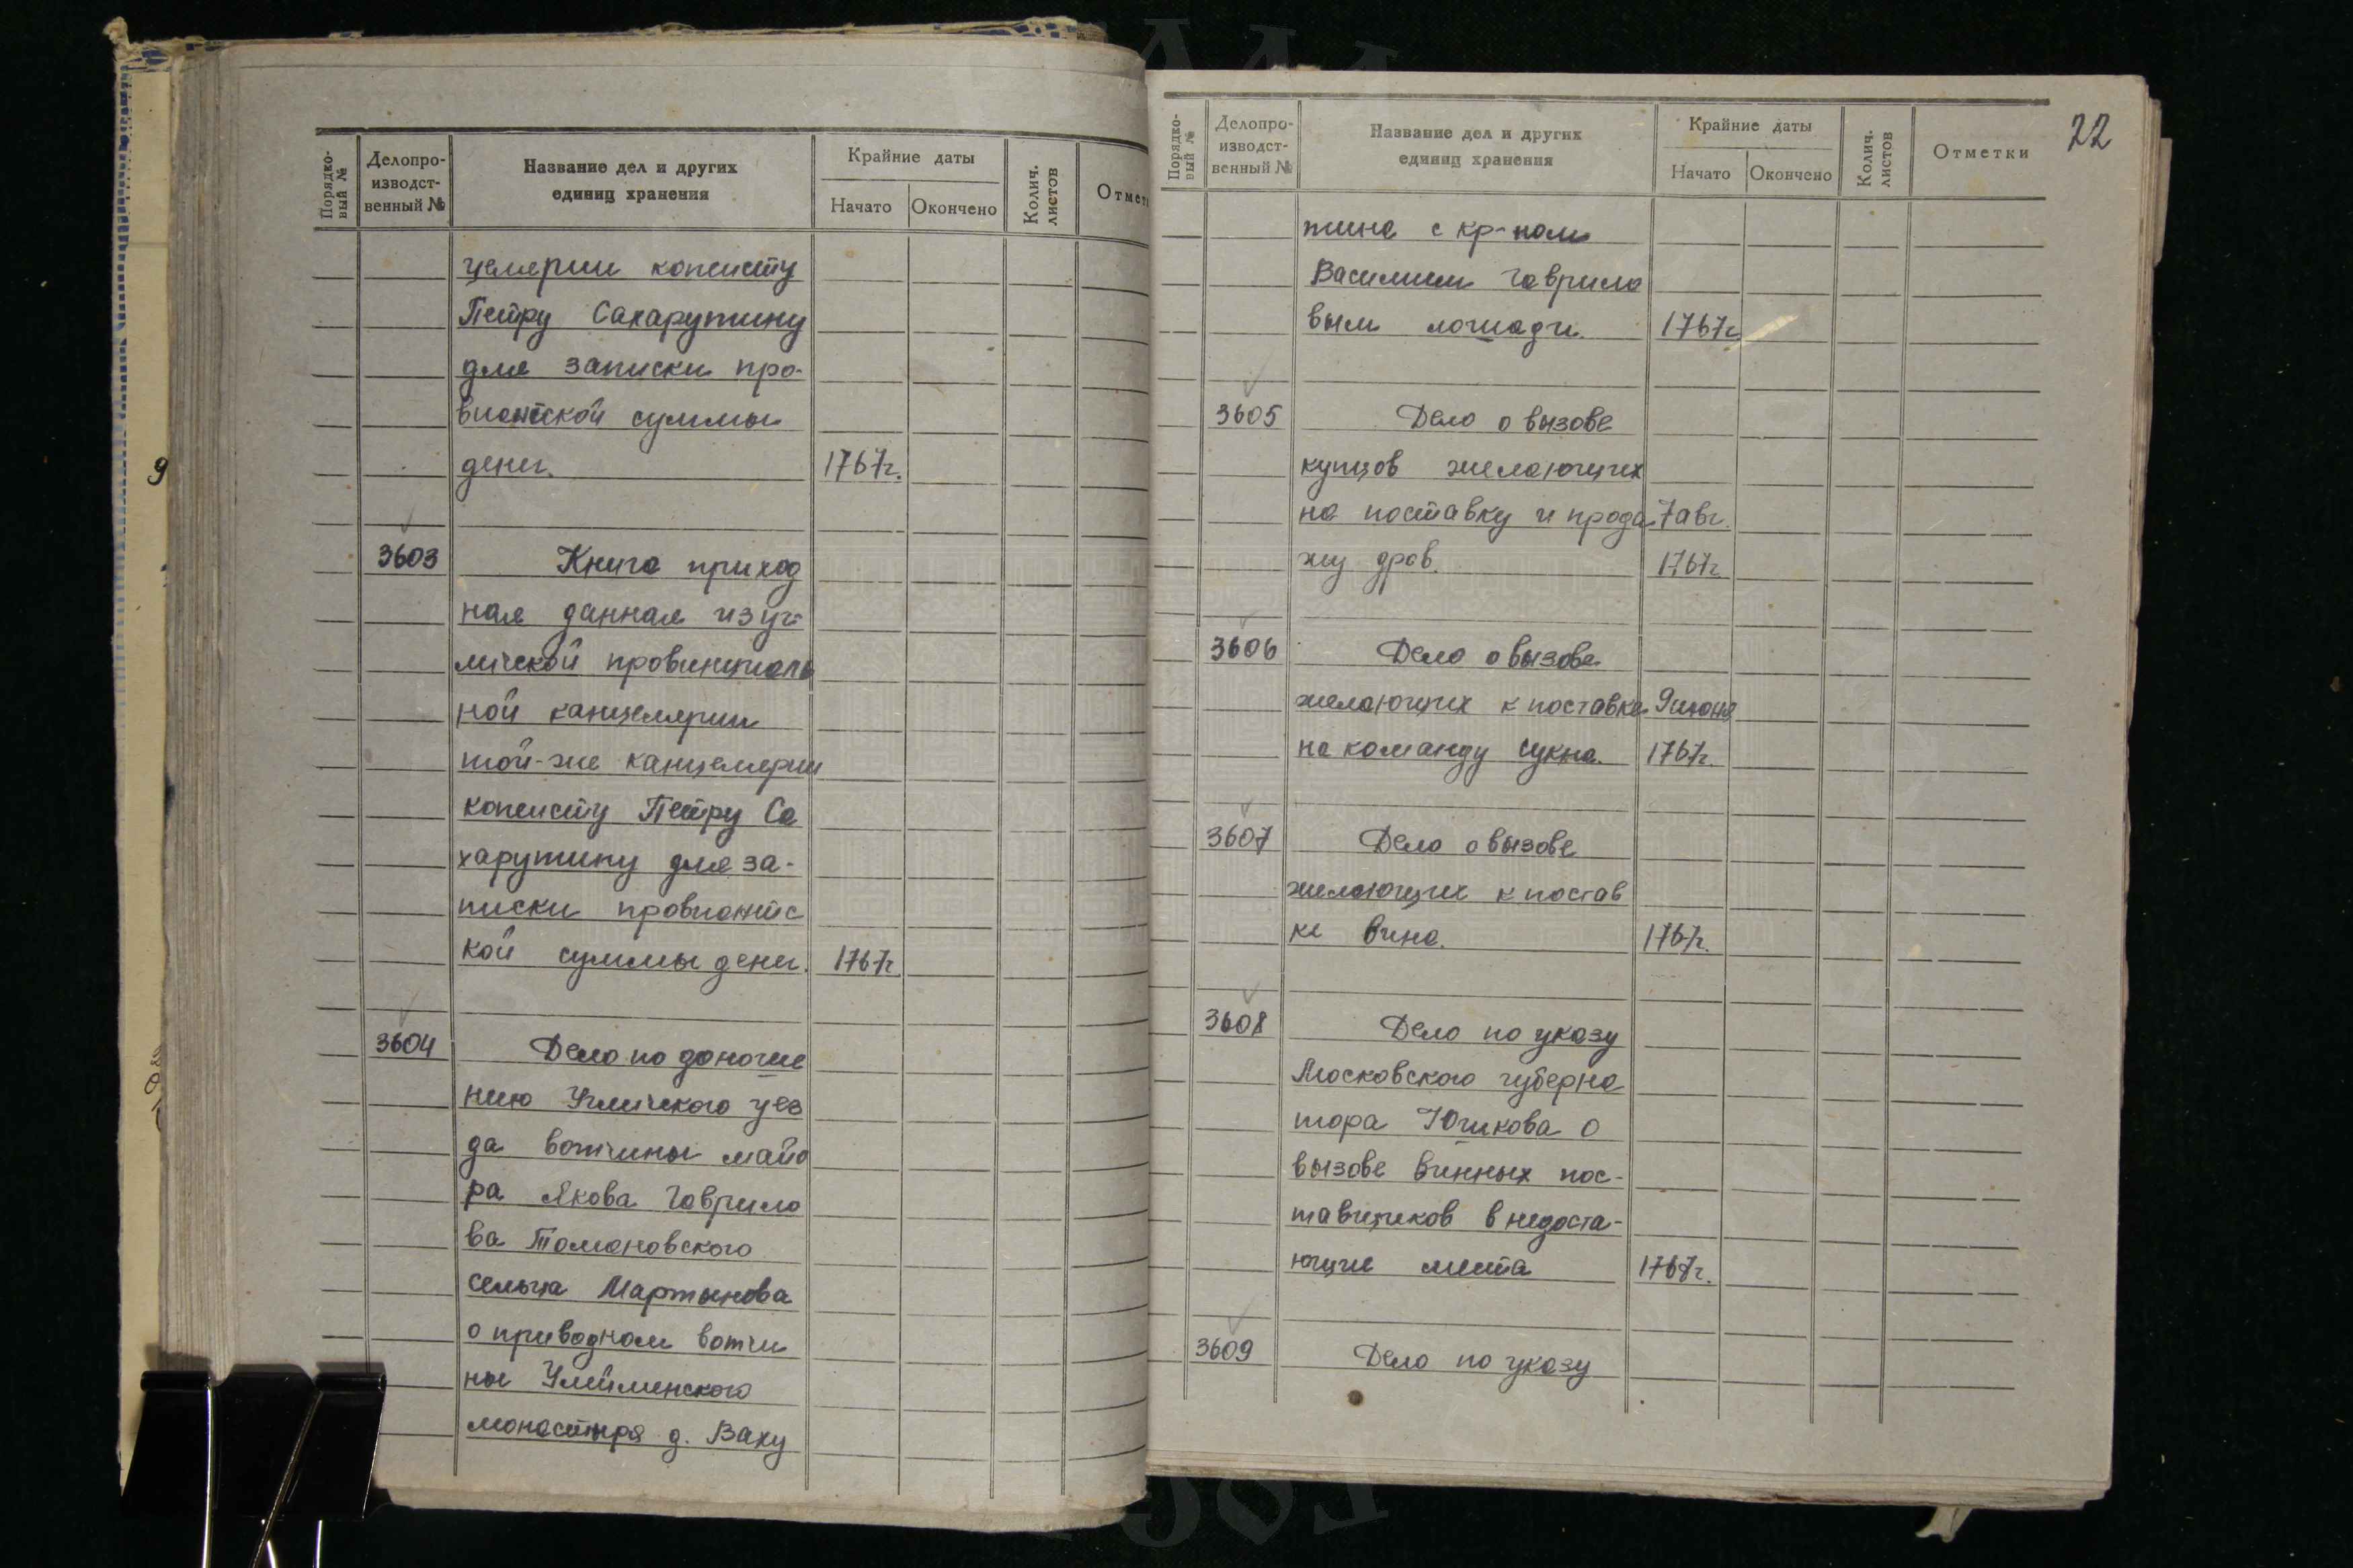 Порядко-
вый №
Делопро-
изводст-
венный №
Название дел и других
единиц хранения
Крайние даты
Начато
Окончено
Колич.
листов
Отмет
целярии кописту
Петру Сахарутину
для записки про-
виантской суммы
денег. 1767г.
3603 Книга приход
ная данная из уг-
личской провинциаль
ной канцелярии
той-же канцелярии
кописту Петру Са
харутину для за-
писки провиантс
кой суммы денег. 1767г
3604 Дело по доноше
нию Угличского уез
да вотчины майо
ра Якова Гаврило
ва Томановского
сельца Мартынова
о приводном вотчи
ны Улейменского
монастыря д. Ваку
22
Порядко-
вый №
Делопро-
изводст-
венный №
Название дел и других
единиц хранения
Крайние даты
Начато
Окончено
Колич.
листов
Отметки
тина с кр-ном
Василием Гаврило
вым лошади. 1767г
3605 Дело о вызове
купцов желающих
на поставку и прода 7 авг.
жу дров. 1767г
3606 Дело о вызове
желающих к поставке 9 июня
на команду сукна. 1767г.
3607 Дело о вызове
желающих к постав
ке вина. 1767г.
3608 Дело по указу
Московского губерна
тора Юшкова о
вызове винных пос-
тавщиков в недоста-
ющие места 1767г.
3609 Дело по указу